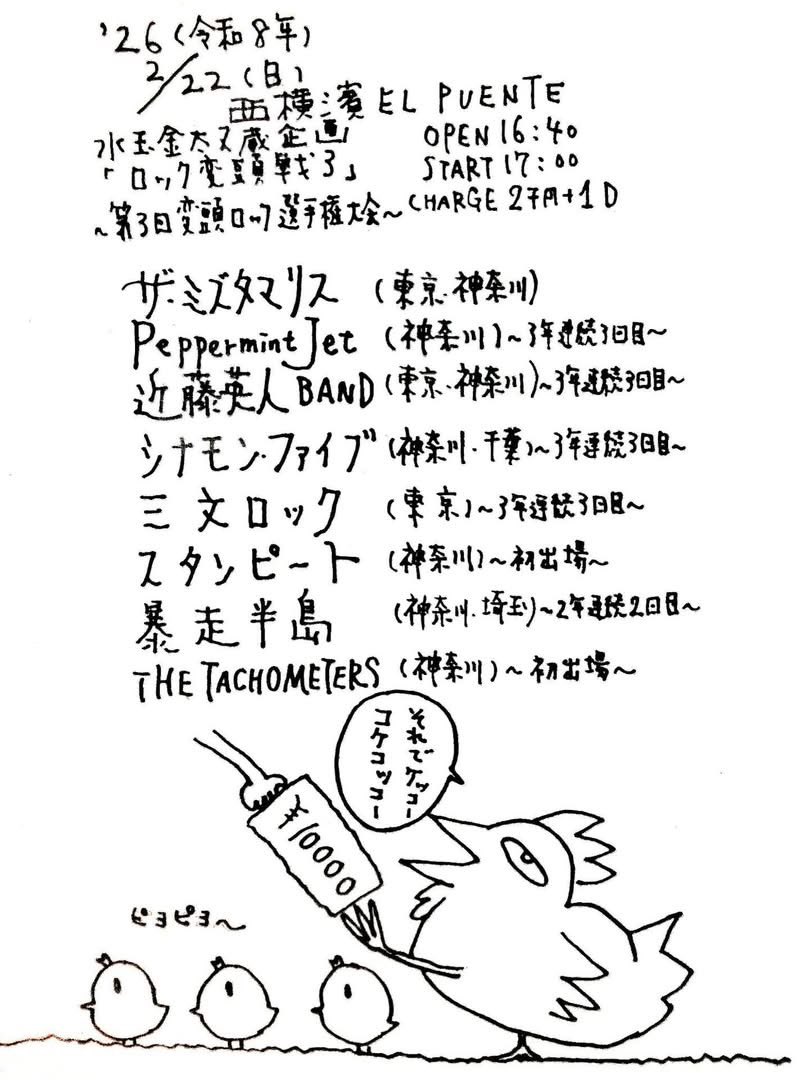 '26(令和8年)
2/22(日)
西横濱 EL PUENTE
水玉金太又蔵企画
OPEN 16:40
「ロック変頭戦3」
START 17:00
~第3回変頭ロック選手権大会~
CHARGE 2千円+1D
ザ・ミズタマリス (東京・神奈川)
Peppermint Jet (神奈川)~3年連続3回目~
近藤英人BAND (東京・神奈川)~3年連続3回目~
シナモン・ファイブ (神奈川・千葉)~3年連続3回目~
三文ロック (東京)~3年連続3回目~
スタンピート (神奈川)~初出場~
暴走半島 (神奈川・埼玉)~2年連続2回目~
THE TACHOMETERS (神奈川)~初出場~
それでケッコー
コケコッコー
¥10000
ピヨピヨ~